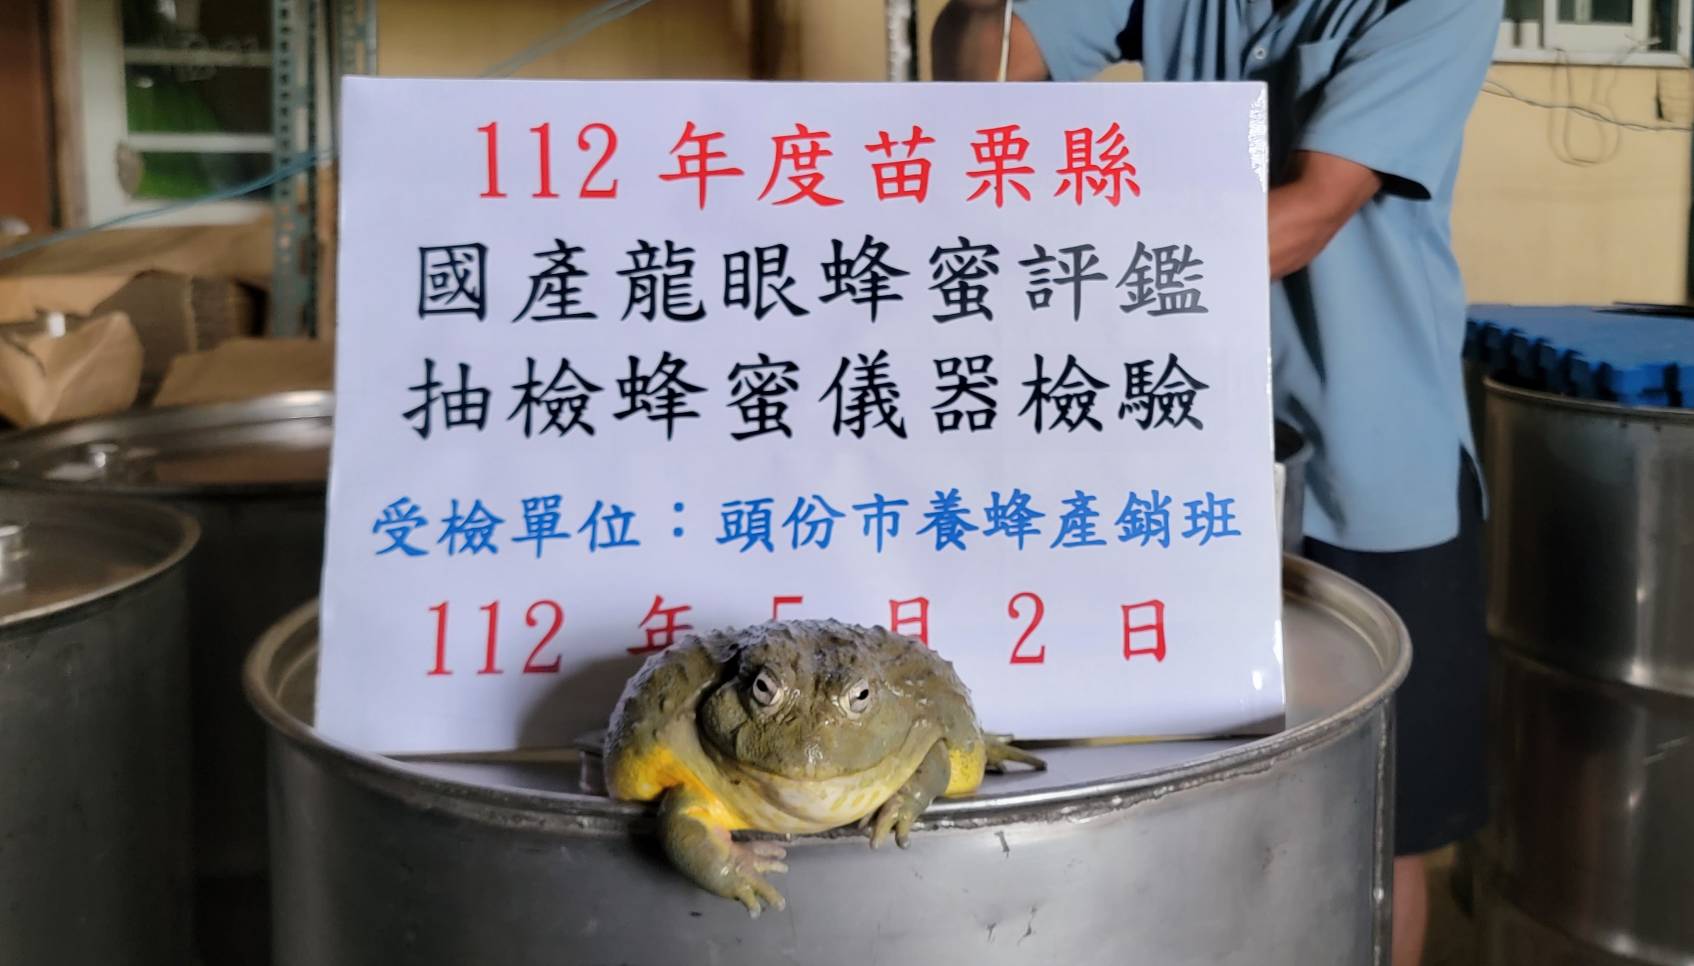 112年度苗栗縣
國產龍眼蜂蜜評鑑
抽檢蜂蜜儀器檢驗
受檢單位：頭份市養蜂產銷班
112 年 5 月 2 日